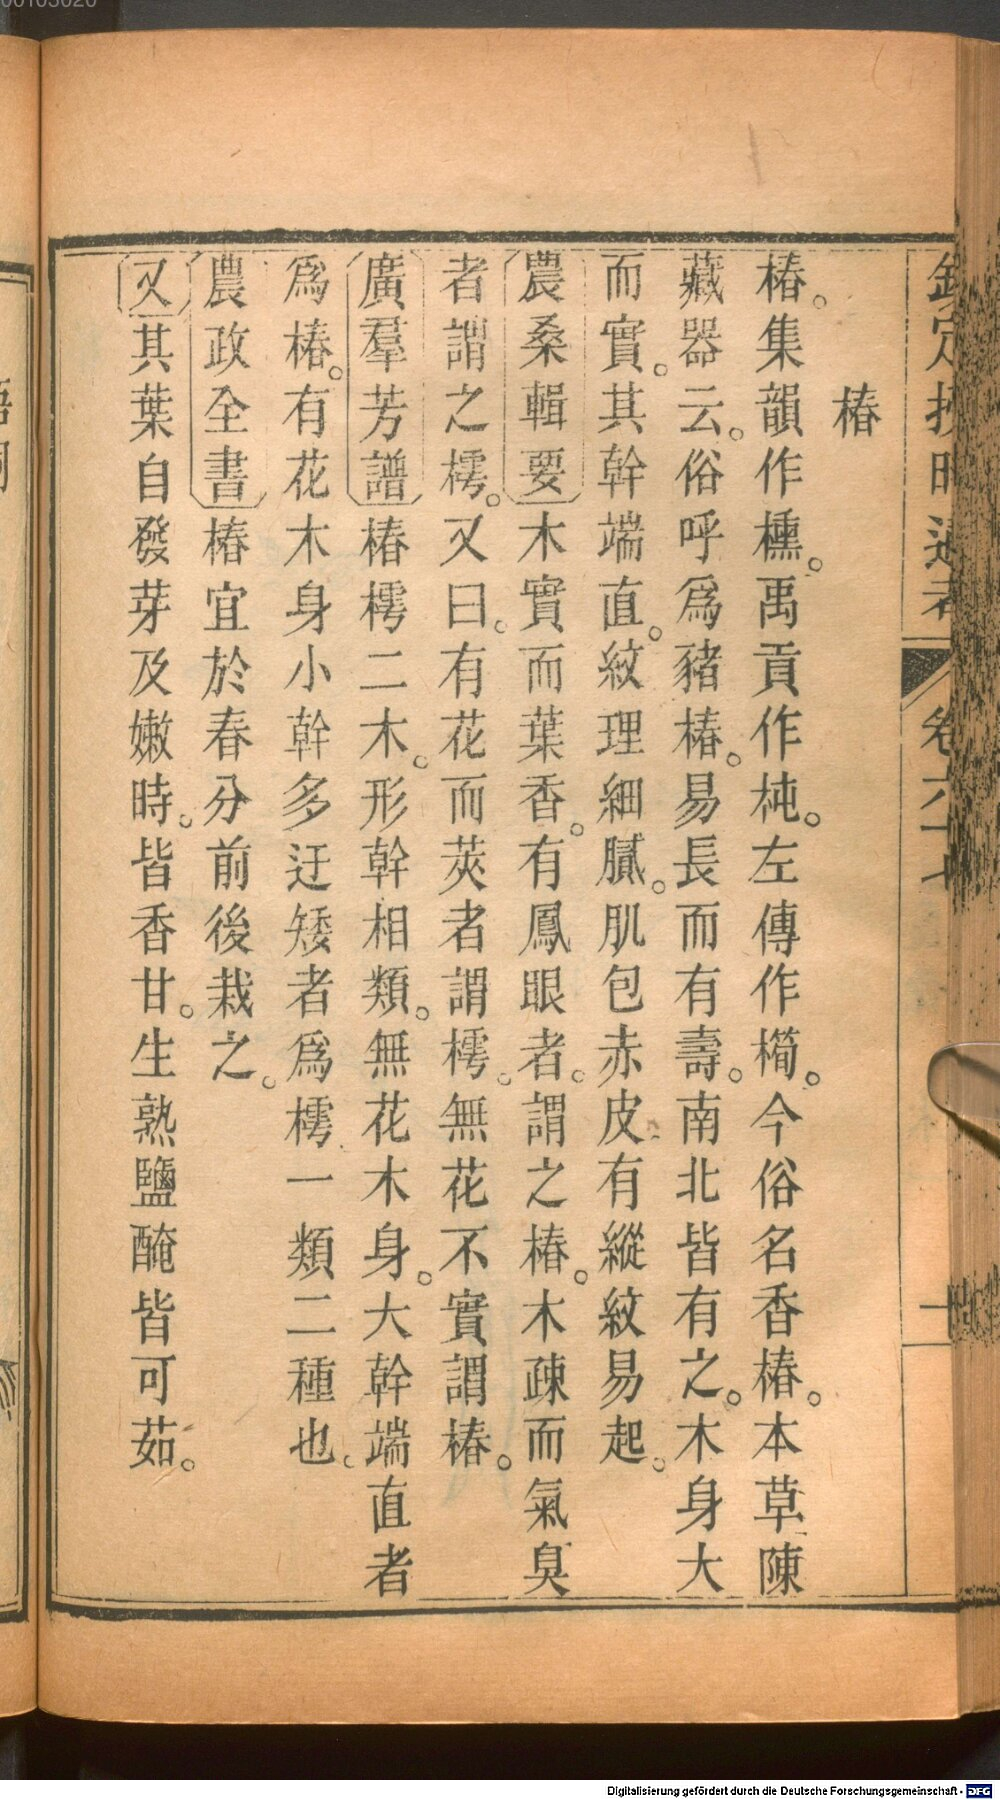 00103020
欽定授時通考
卷六十七
十
椿
椿。集韻作櫄。禹貢作杶。左傳作橁。今俗名香椿。本草陳
藏器云。俗呼爲豬椿。易長而有壽。南北皆有之。木身大
而實。其幹端直。紋理細膩。肌包赤皮有縱紋易起。
農桑輯要木實而葉香。有鳳眼者。謂之椿。木疎而氣臭
者謂之樗。又曰。有花而莢者謂樗。無花不實謂椿。
廣羣芳譜椿樗二木。形幹相類。無花木身。大幹端直者
爲椿。有花木身小幹多迂矮者爲樗一類二種也。
農政全書椿宜於春分前後栽之。
又其葉自發芽及嫩時。皆香甘。生熟鹽醃皆可茹。
Digitalisierung gefördert durch die Deutsche Forschungsgemeinschaft - DFG